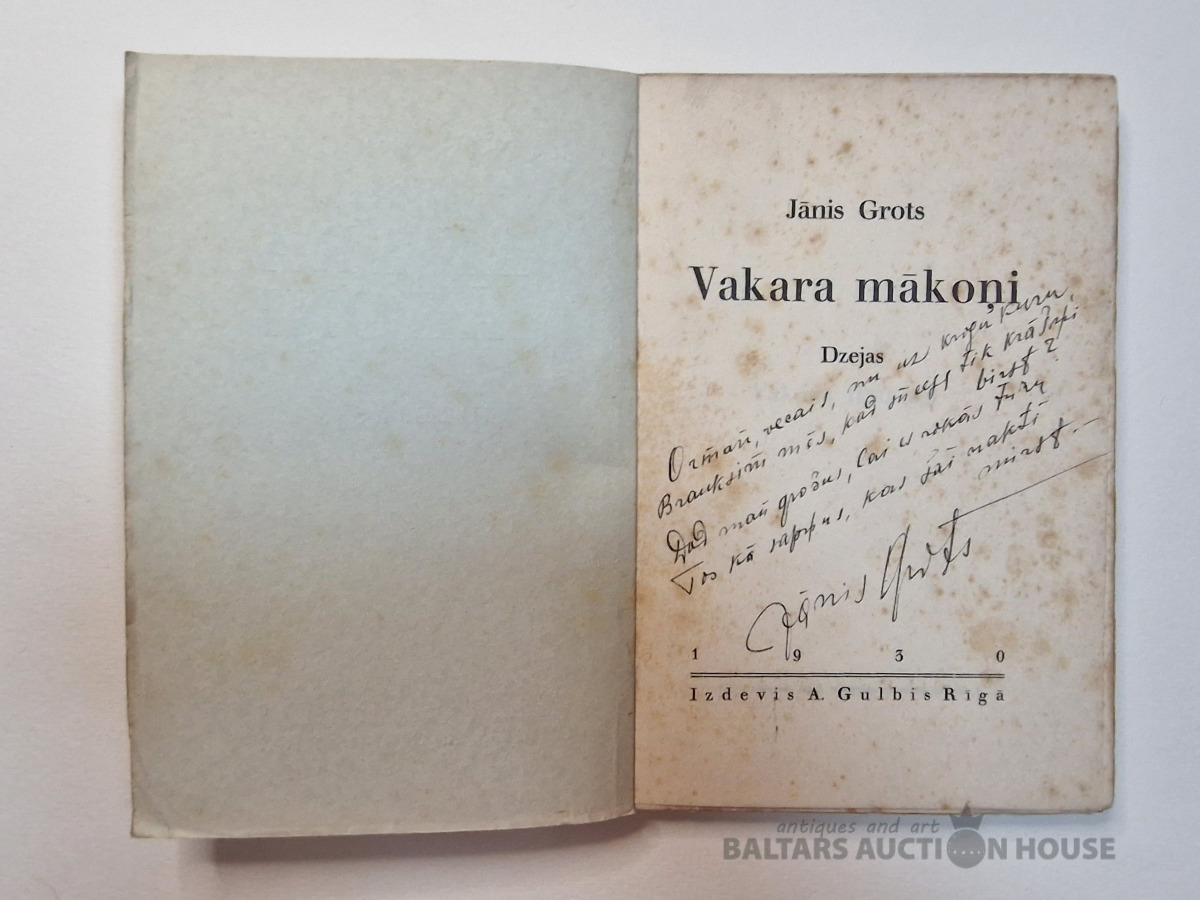 Jānis Grots
Vakara mākoņi
Dzejas
Ormań, vecais, nu uz krogu kuru,
Brauksim mēs, kad sniegs tik krāšņi
birst?
Dod man grožus, lai es rokās turu
Tos kā sapņus, kas šai naktī
mirst. —
Jānis Grots
1930
Izdevis A. Gulbis Rīgā
antiques and art
BALTARS AUCTION HOUSE